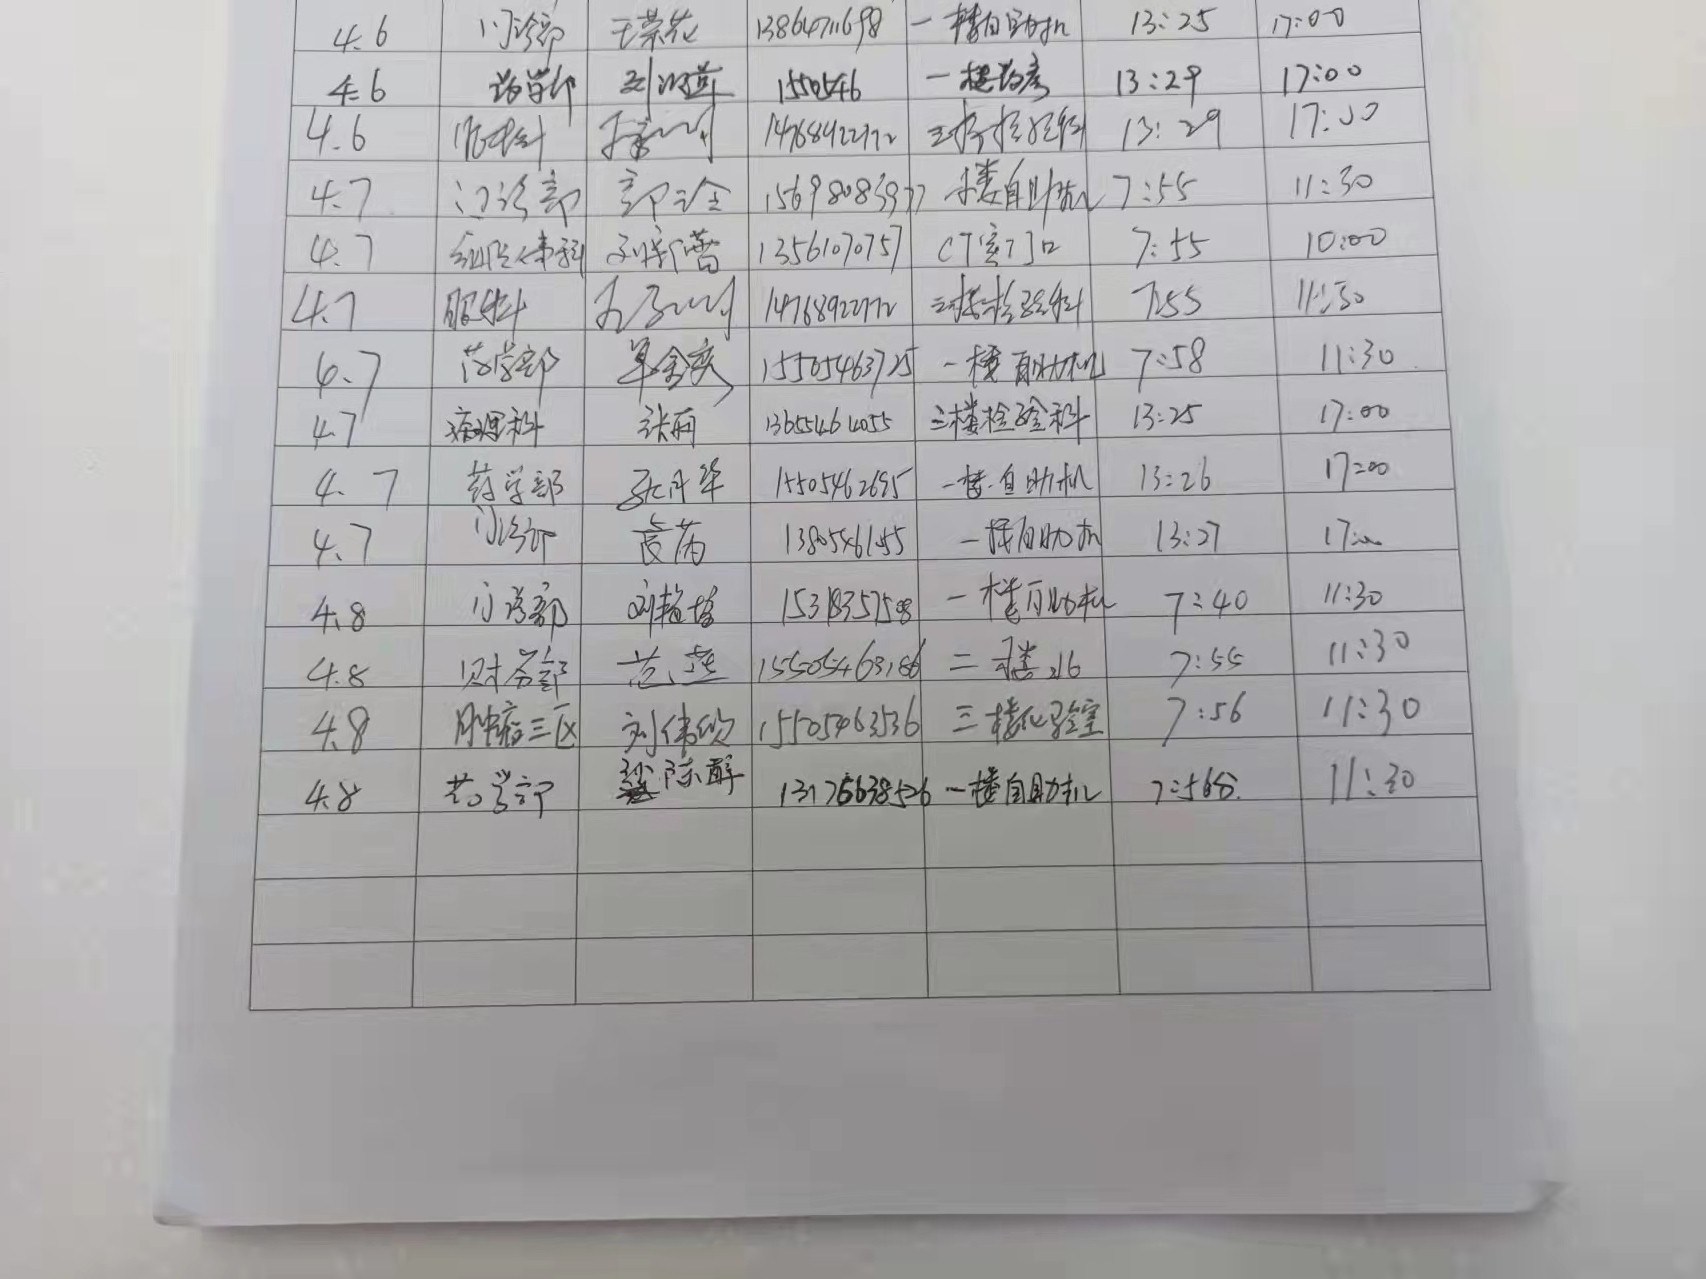 4.6 门诊部 王荣花 13864711698 一楼自助机 13:25 17:00
4.6 药学部 1550546 一楼药房 13:29 17:00
4.6 眼科 14768922772 三楼检验科 13:29 17:00
4.7 门诊部 15698083977 楼自助机 7:55 11:30
4.7 13561070757 CT室门口 7:55 10:00
4.7 眼科 14768922772 三楼检验科 7:55 11:30
4.7 药学部 单金爽 15505463725 一楼自助机 7:58 11:30
4.7 病理科 张雨 13655464055 三楼检验科 13:25 17:00
4.7 药学部 张月华 15505462695 一楼自助机 13:26 17:00
4.7 门诊部 1380546155 一楼自助机 13:27
4.8 门诊部 15318357508 一楼自助机 7:40 11:30
4.8 财务部 范燕 15505463186 二楼 7:55 11:30
4.8 肿瘤三区 刘伟欣 15505463536 三楼化验室 7:56 11:30
4.8 药学部 陈群 13176638526 一楼自助机 7:56分 11:30